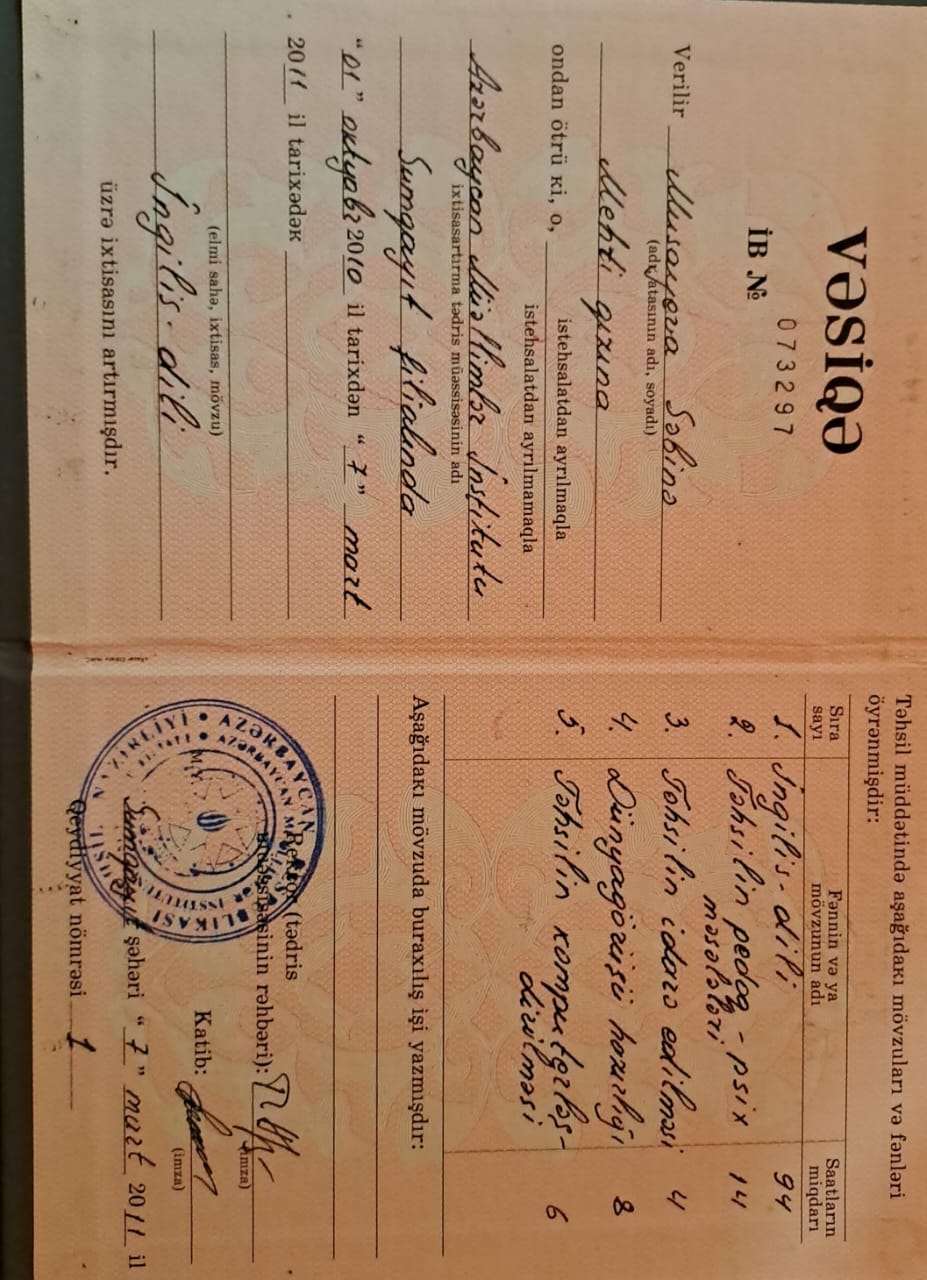 VƏSİQƏ
İB № 073297
Verilir Musayeva Səbinə
(adı, atasının adı, soyadı)
Mehti qızına
istehsalatdan ayrılmaqla
ondan ötrü ki, o,
istehsalatdan ayrılmamaqla
Azərbaycan Müəllimlər İnstitutu
ixtisasartırma tədris müəssisəsinin adı
Sumqayıt filialında
"01" oktyabr 2010 il tarixdən "7" mart
2011 il tarixədək
(elmi sahə, ixtisas, mövzu)
İngilis-dili
üzrə ixtisasını artırmışdır.
Təhsil müddətində aşağıdakı mövzuları və fənləri
öyrənmişdir:
Sıra sayı Fənnin və ya mövzunun adı Saatların miqdarı
1. İngilis-dili 94
2. Təhsilin pedaq-psix 14
məsələləri
3. Təhsilin idarə edilməsi 4
4. Dünyagörüşü hazırlığı 8
5. Təhsilin kompüterləş- 6
dirilməsi
Aşağıdakı mövzuda buraxılış işi yazmışdır:
Rektor (tədris
müəssisəsinin rəhbəri):
(imza)
Katib:
(imza)
Sumqayıt şəhəri "7" mart 2011 il
Qeydiyyat nömrəsi 1
AZƏRBAYCAN